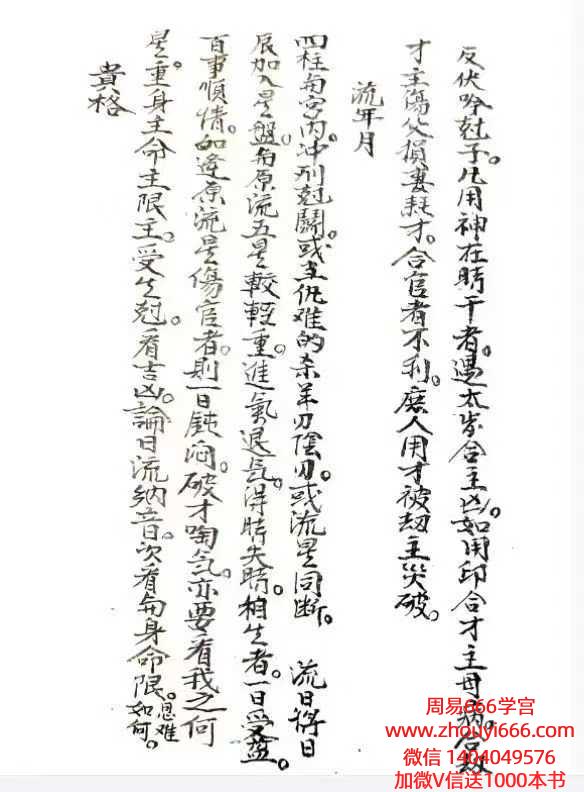 反伏吟尅子。凡用神在時干者。遇太岁合主凶。如用印合才主母病。合
才主傷父損妻耗才。合官者不利。庶人用才被劫主災破。
流年月
四柱与宮內。冲刑尅鬪。或主仇难的杀羊刃陰刃。或流星同断。 流日将日
辰加入星盤与原流五星較輕重。進氣退气。得時失時。相生者。一日受益。
百事順情。如逢原流星傷官者。則一日鈍闷。破才啕气。亦要看我之何
星。重身主命主限主。受生尅。看吉凶。論日流纳音。次看与身命限。恩难如何。
貴格
周易666学宫
www.zhouyi666.com
微信 1404049576
加微V信送1000本书